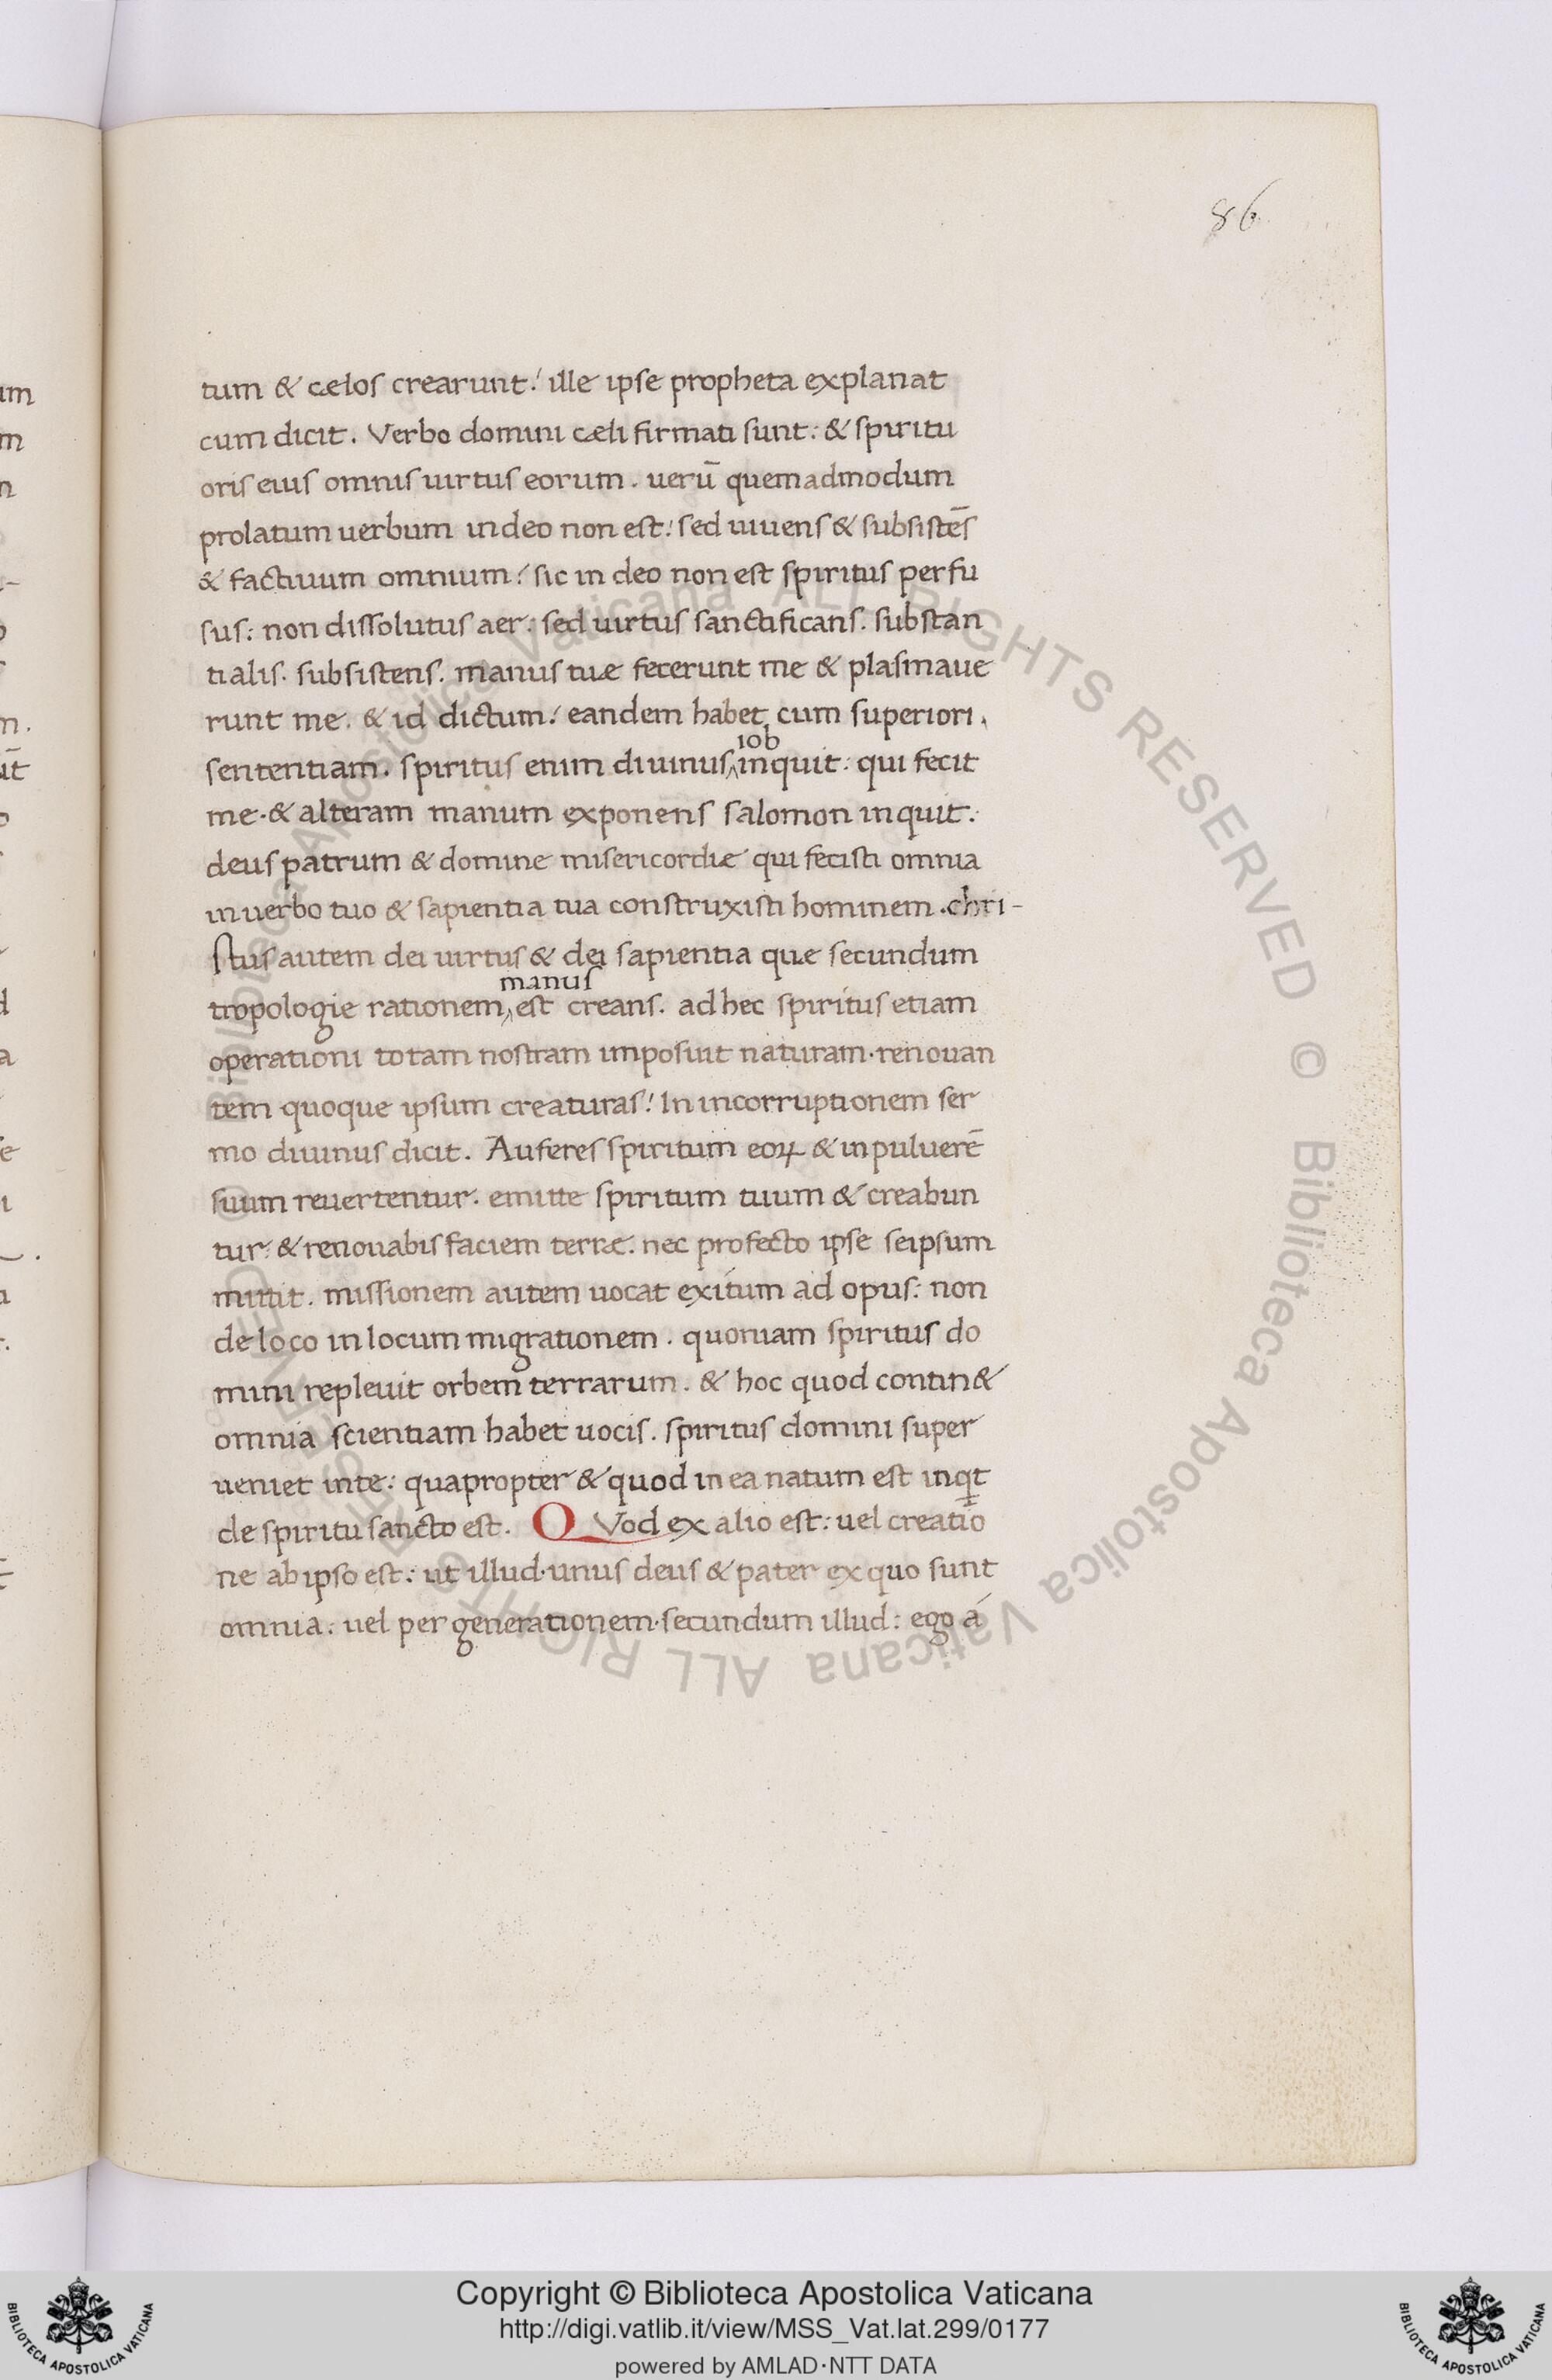 86
tum & cælos crearunt: ille ipse propheta explanat
cum dicit. Verbo domini cæli firmati sunt: & spiritu
oris eius omnis uirtus eorum. uerū quemadmodum
prolatum uerbum in deo non est: sed uiuens & subsistēs
& factiuum omnium: sic in deo non est spiritus perfu
sus: non dissolutus aer: sed uirtus sanctificans. substan
tialis. subsistens. manus tuæ fecerunt me & plasmaue
runt me. & id dictum: eandem habet cum superiori
iob
sententiam. spiritus enim diuinus‸inquit: qui fecit
me. & alteram manum exponens salomon inquit:
deus patrum & domine misericordiæ qui fecisti omnia
in uerbo tuo & sapientia tua construxisti hominem. chri-
stus autem dei uirtus & dei sapientia quæ secundum
manus
tropologie rationem‸est creans. ad hec spiritus etiam
operationi totam nostram imposuit naturam. renouan
tem quoque ipsum creaturas: In incorruptionem ser
mo diuinus dicit. Auferes spiritum eoꝝ & in puluerē
suum reuertentur. emitte spiritum tuum & creabun
tur: & renouabis faciem terræ. nec profecto ipse seipsum
mittit. missionem autem uocat exitum ad opus: non
de loco in locum migrationem. quoniam spiritus do
mini repleuit orbem terrarum. & hoc quod contin&
omnia scientiam habet uocis. spiritus domini super
ueniet in te: quapropter & quod in ea natum est inqt
de spiritu sancto est. QVod ex alio est: uel creatio
ne ab ipso est: ut illud. unus deus & pater ex quo sunt
omnia: uel per generationem. secundum illud: ego á
um
m
n
m.
ūt
d
a
e
i
© Biblioteca Apostolica Vaticana ALL RIGHTS RESERVED © Biblioteca Apostolica Vaticana ALL RIGHTS RESERVED
Copyright © Biblioteca Apostolica Vaticana
http://digi.vatlib.it/view/MSS_Vat.lat.299/0177
powered by AMLAD·NTT DATA
BIBLIOTECA APOSTOLICA VATICANA
BIBLIOTECA APOSTOLICA VATICANA